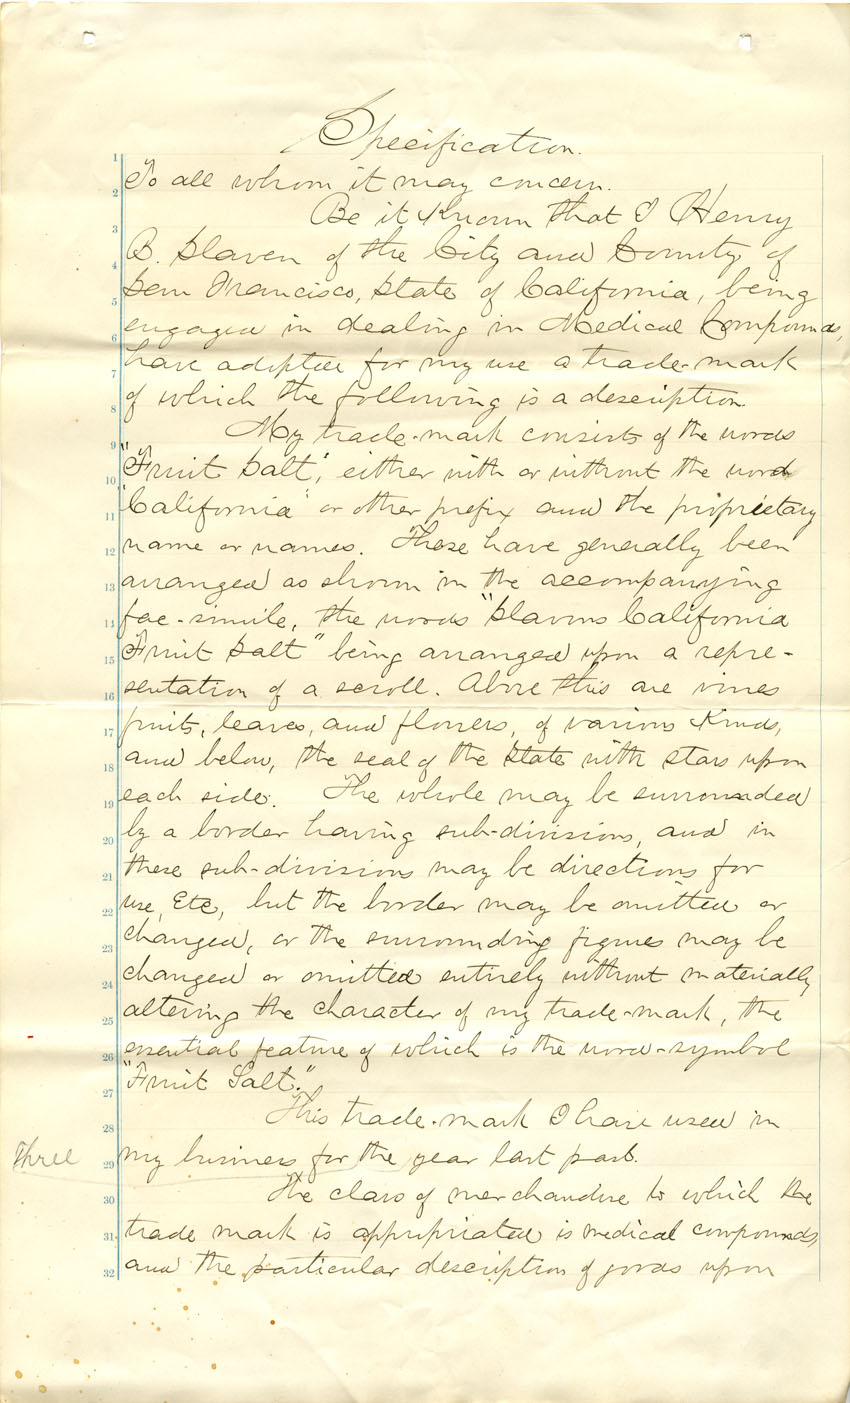 Specification.
1 To all whom it may concern.
2 Be it Known that I Henry
3 B. Slaven of the City and County of
4 San Francisco, State of California, being
5 engaged in dealing in Medical Compounds,
6 have adopted for my use a trade-mark
7 of which the following is a description.
8 My trade-mark consists of the words
9 "Fruit Salt", either with or without the word
10 "California" or other prefix and the proprietary
11 name or names. These have generally been
12 arranged as shown in the accompanying
13 fac-simile, the words "Slavens California
14 Fruit Salt" being arranged upon a repre-
15 sentation of a scroll. Above this are vines
16 fruits, leaves, and flowers, of various Kinds,
17 and below, the seal of the State with stars upon
18 each side. The whole may be surrounded
19 by a border having sub-divisions, and in
20 these sub-divisions may be directions for
21 use, Etc, but the border may be omitted or
22 changed, or the surrounding figures may be
23 changed or omitted entirely without materially
24 altering the character of my trade-mark, the
25 essential feature of which is the word-symbol
26 "Fruit Salt."
27 This trade-mark I have used in
28 my business for the year last past.
Three
29 The class of merchandise to which the
30 trade mark is appropriated is medical compounds,
31 and the particular description of goods upon
32